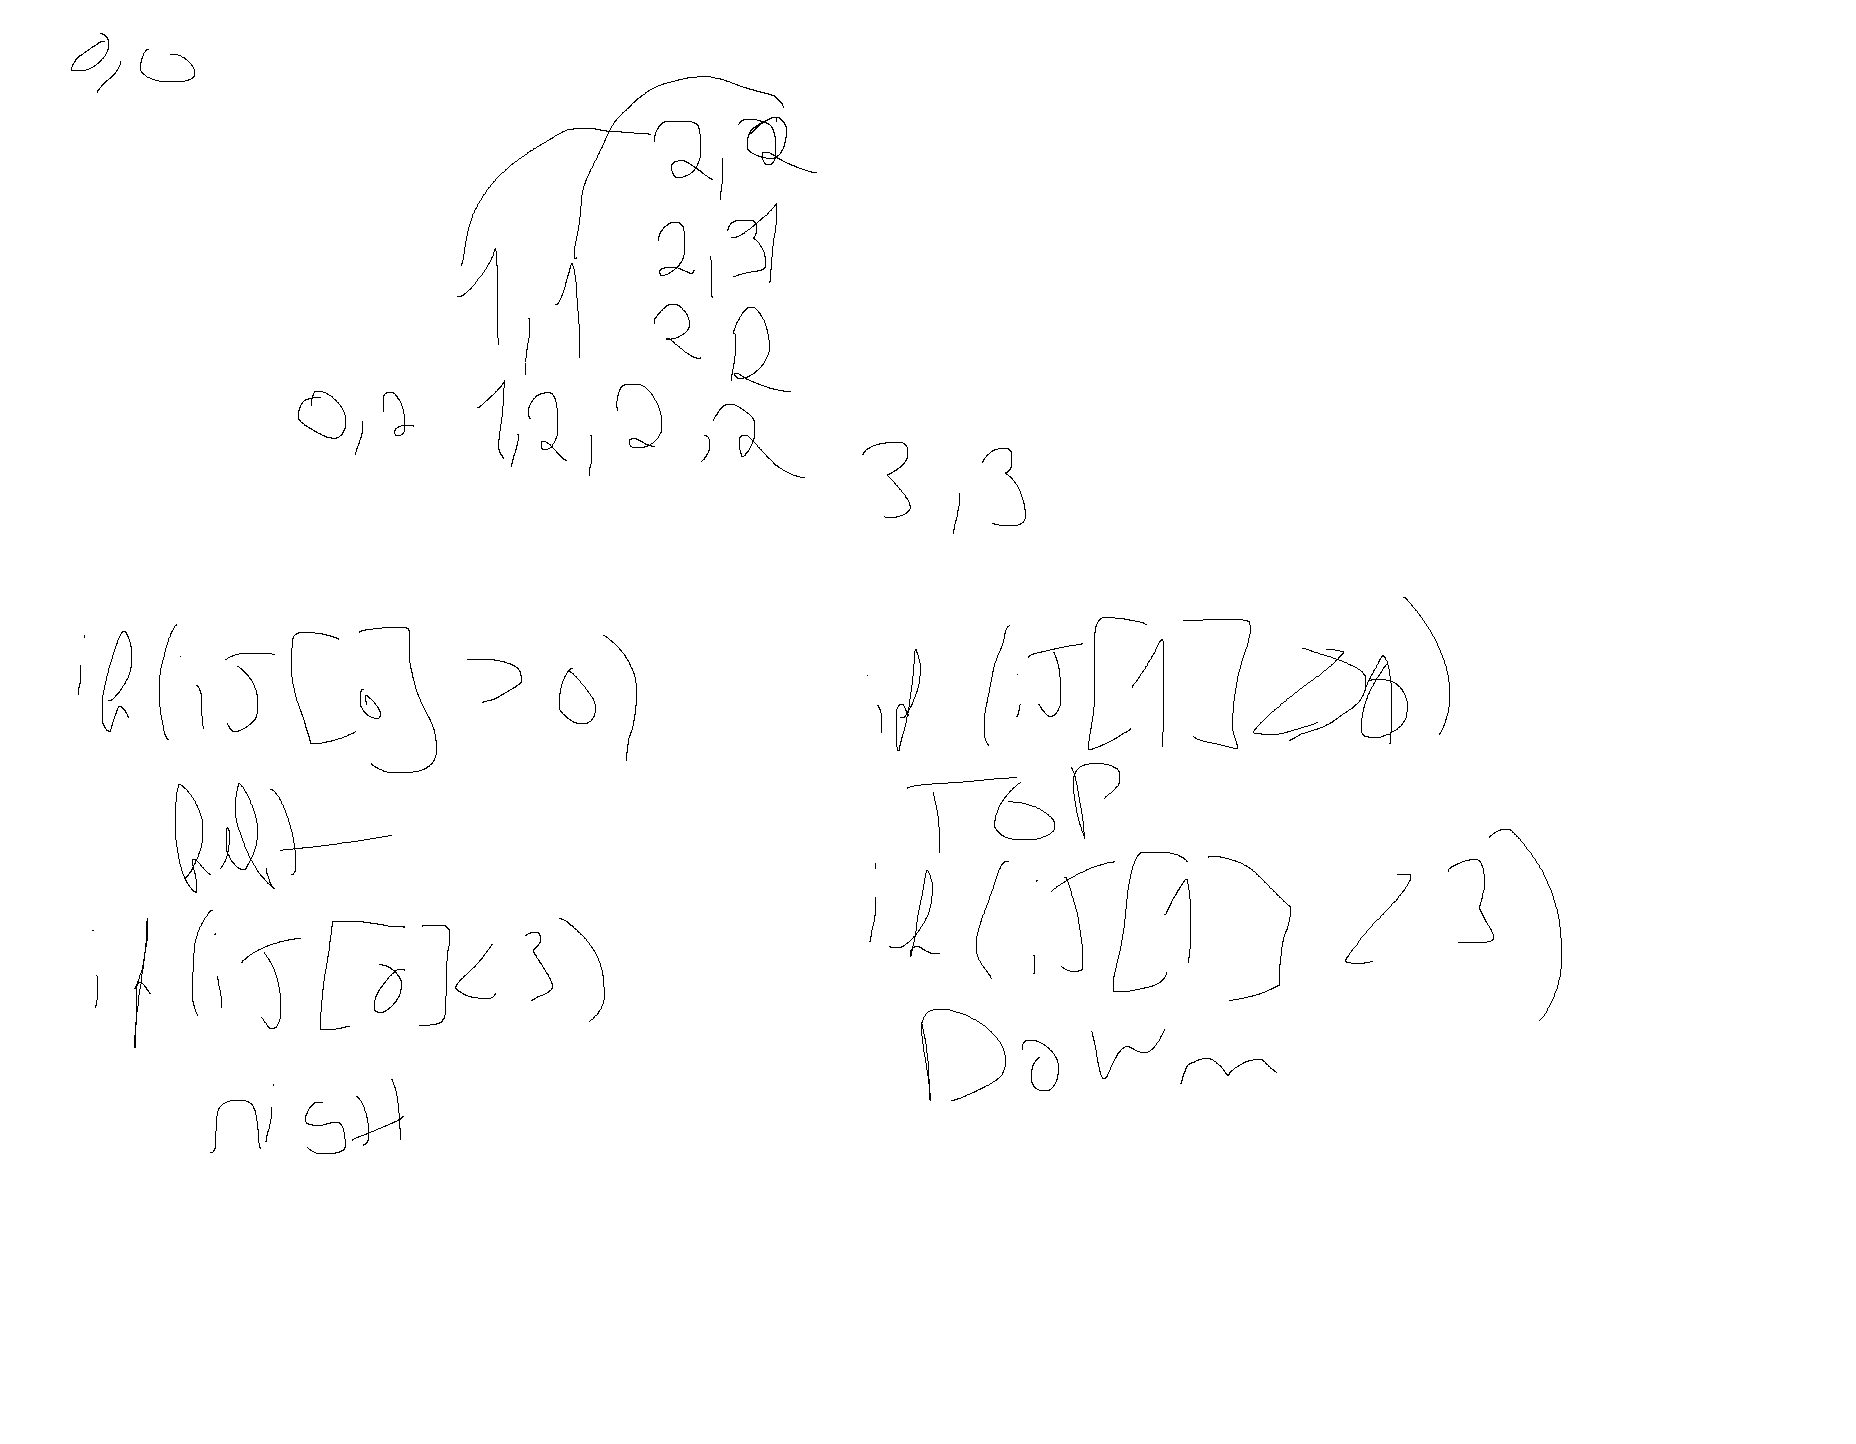 0,0
2,2
2,3
1,1
2 2
0,2 1,2,2,2
3,3
if (iJ[0] > 0)
left
if (iJ[0] < 3)
right
if (iJ[1] > 0)
TOP
if (iJ[1] < 3)
Down